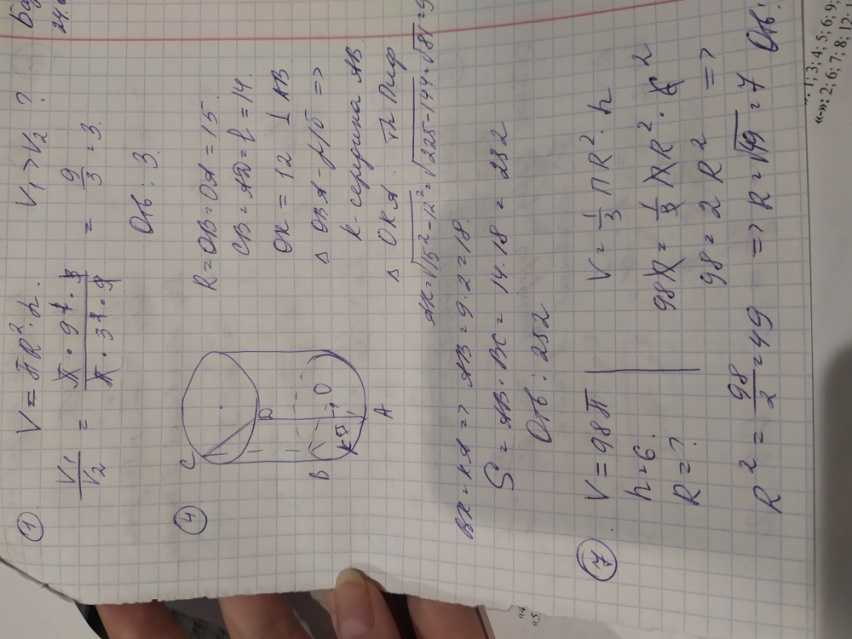 ① V = πR²·h. V₁ > V₂ ?
V₁/V₂ = π·9²·3 / π·3²·9 = 9/3 = 3.
Отв: 3.
④
C
D
O
B
K
A
R = OB = OA = 15.
CB = AD = l = 14.
OK = 12 ⊥ AB
Δ OBA - р/б =>
K - середина AB
Δ OKA. Тл Пиф
AK = √15² - 12² = √225 - 144 = √81 = 9
BK = KA => AB = 9·2 = 18.
S = AB·BC = 14·18 = 252
Отв: 252
⑦. V = 98π
h = 6.
R = ?
V = 1/3 πR²·h
98π = 1/3 πR²·6 2
98 = 2R² =>
R² = 98/2 = 49 => R = √49 = 7 Отв:
1; 3; 4; 5; 6; 9;
«-»: 2; 6; 7; 8; 12;